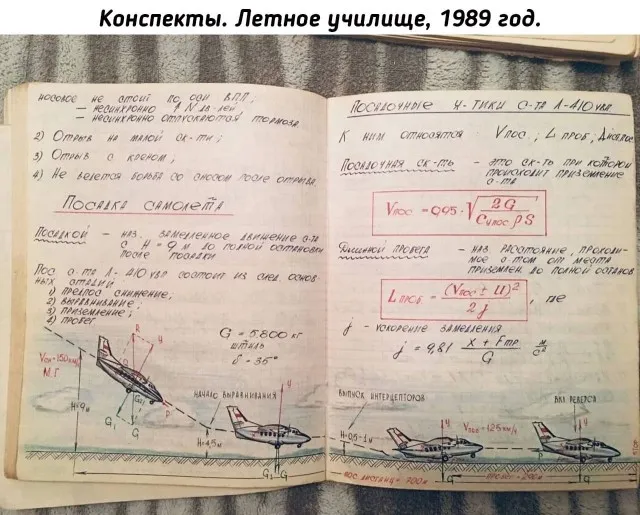 Конспекты. Летное училище, 1989 год.
носовое не стоит по оси ВПП;
— несинхронно ↑ N дв-лей
— несинхронно отпускаются тормоза.
2) Отрыв на малой ск-ти;
3) Отрыв с креном;
4) Не ведется борьба со сносом после отрыва.
Посадка самолета
Посадкой — наз. замедленное движение с-та
с H = 9 м до полной остановки
после посадки
Пос. с-та Л-410 УВП состоит из след. основ-
ных стадий
1) предпос снижение;
2) выравнивание;
3) приземление;
4) пробег
G = 5.800 кг
штиль
δ = 35°
M.Г
H=9м
G₁
G
начало выравнивания
H=4,5м
G
Посадочные х-тики с-та Л-410 УВП
К ним относятся Vпос.; L проб.,
Посадочная ск-ть — это ск-ть при которой
происходит приземление
с-та
Vпос = 0,95·√ 2G / Cyпос ρ S
Длиной пробега — наз. расстояние, проходи-
мое с-том от места
приземлен. до полной останов
L проб = (Vпос ± U)² / 2j , где
j — ускорение замедления
j = 9,81 X + Fтр / G м/с²
выпуск интерцепторов
H=0,5-1м
Vпос=125 км/ч
вкл. реверса
G
G
пос. дистанц = 700м